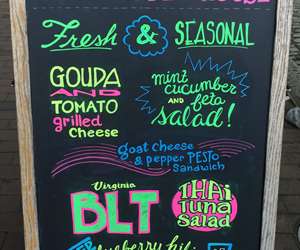 HOUSE
Fresh & SEASONAL
GOUDA
AND
TOMATO
grilled
Cheese
mint
cucumber
AND feta
salad!
goat cheese
& pepper PESTO
Sandwich
Virginia
BLT
THAI
Tuna
Salad